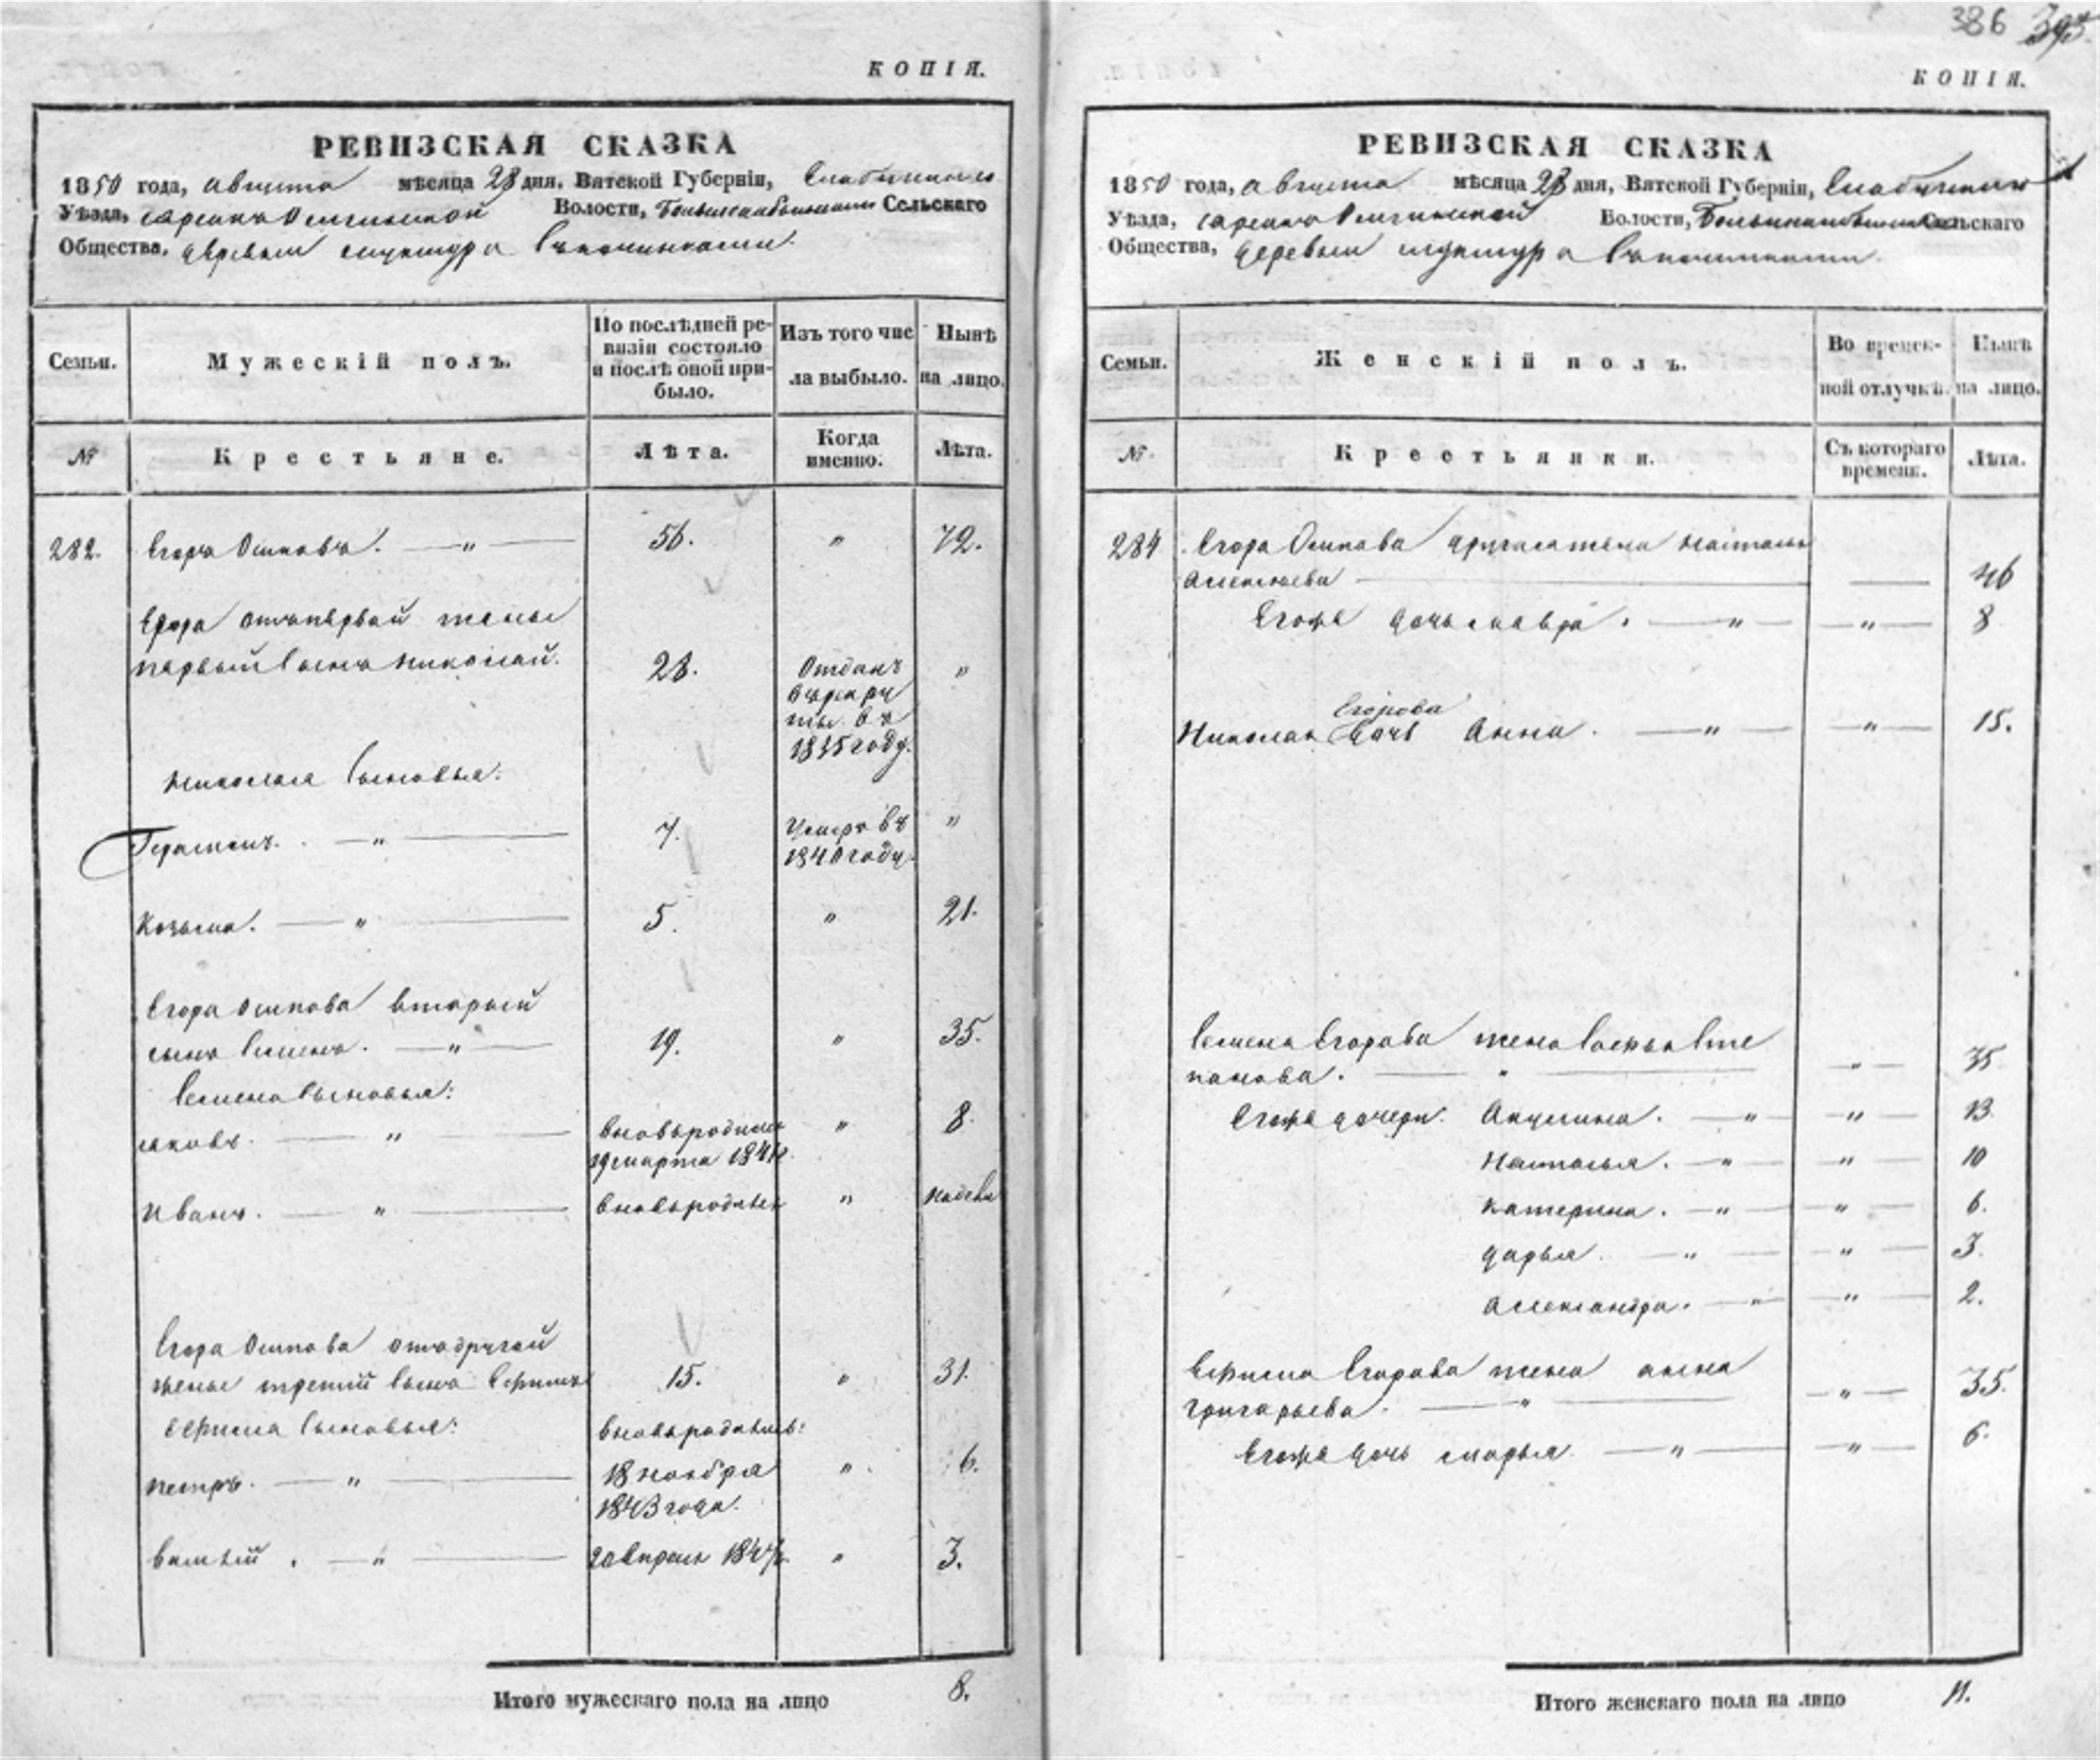 КОПІЯ.
РЕВИЗСКАЯ СКАЗКА
1850 года, августа мѣсяца 28 дня, Вятской Губерніи,
Уѣзда, Волости, Сельскаго
Общества, деревни
Семьи. Мужескій полъ. По послѣдней ре-
визіи состояло
и послѣ оной при-
было. Изъ того чис
ла выбыло. Нынѣ
на лицо.
№ Крестьяне. Лѣта. Когда
именно. Лѣта.
282. Егоръ Осиповъ. — " — 56. " 72.
Егора отъ первой жены
первый сынъ Николай. 28. Отданъ
въ рекру
ты въ
1835 году. "
Николая сыновья:
Герасимъ. — " — 7. Умеръ въ
1840 году. "
Козьма. — " — 5. " 21.
Егора Осипова вторый
сынъ Семенъ. — " — 19. " 35.
Семена сыновья:
Яковъ. — " — вновь рожденъ
марта " 8.
Иванъ. — " — вновь рожденъ " недели
Егора Осипова отъ другой
жены третий сынъ Ефимъ 15. " 31.
Ефима сыновья: вновь рождены:
Петръ. — " — 18 ноября
1843 года. " 6.
Василій. — " — " 3.
Итого мужескаго пола на лицо 8.
386 393.
КОПІЯ.
РЕВИЗСКАЯ СКАЗКА
1850 года, августа мѣсяца 28 дня, Вятской Губерніи,
Уѣзда, Волости, Сельскаго
Общества, деревни
Семьи. Женскій полъ. Во времен-
ной отлучкѣ. Нынѣ
на лицо.
№ Крестьянки. Съ котораго
времени. Лѣта.
284 Егора Осипова другая жена Наталья
Алексѣева — — 46
Его же дочь Мавра. — " — — " — 8
Егорова
Николая дочь Анна. — " — — " — 15.
Семена Егорова жена Софья Сте
панова. — " — — " — 35
Его же дочери: Акулина. — " — — " — 13.
Наталья. — " — — " — 10
Катерина. — " — — " — 6.
Дарья. — " — — " — 3.
Александра. — " — — " — 2.
Ефима Егорова жена Анна
Григорьева. — " — — " — 35.
Его же дочь Марья. — " — — " — 6.
Итого женскаго пола на лицо 11.